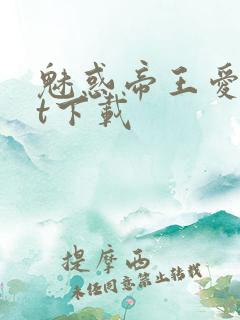 魅惑帝王爱
t下载
提摩西
未经同意禁止转载